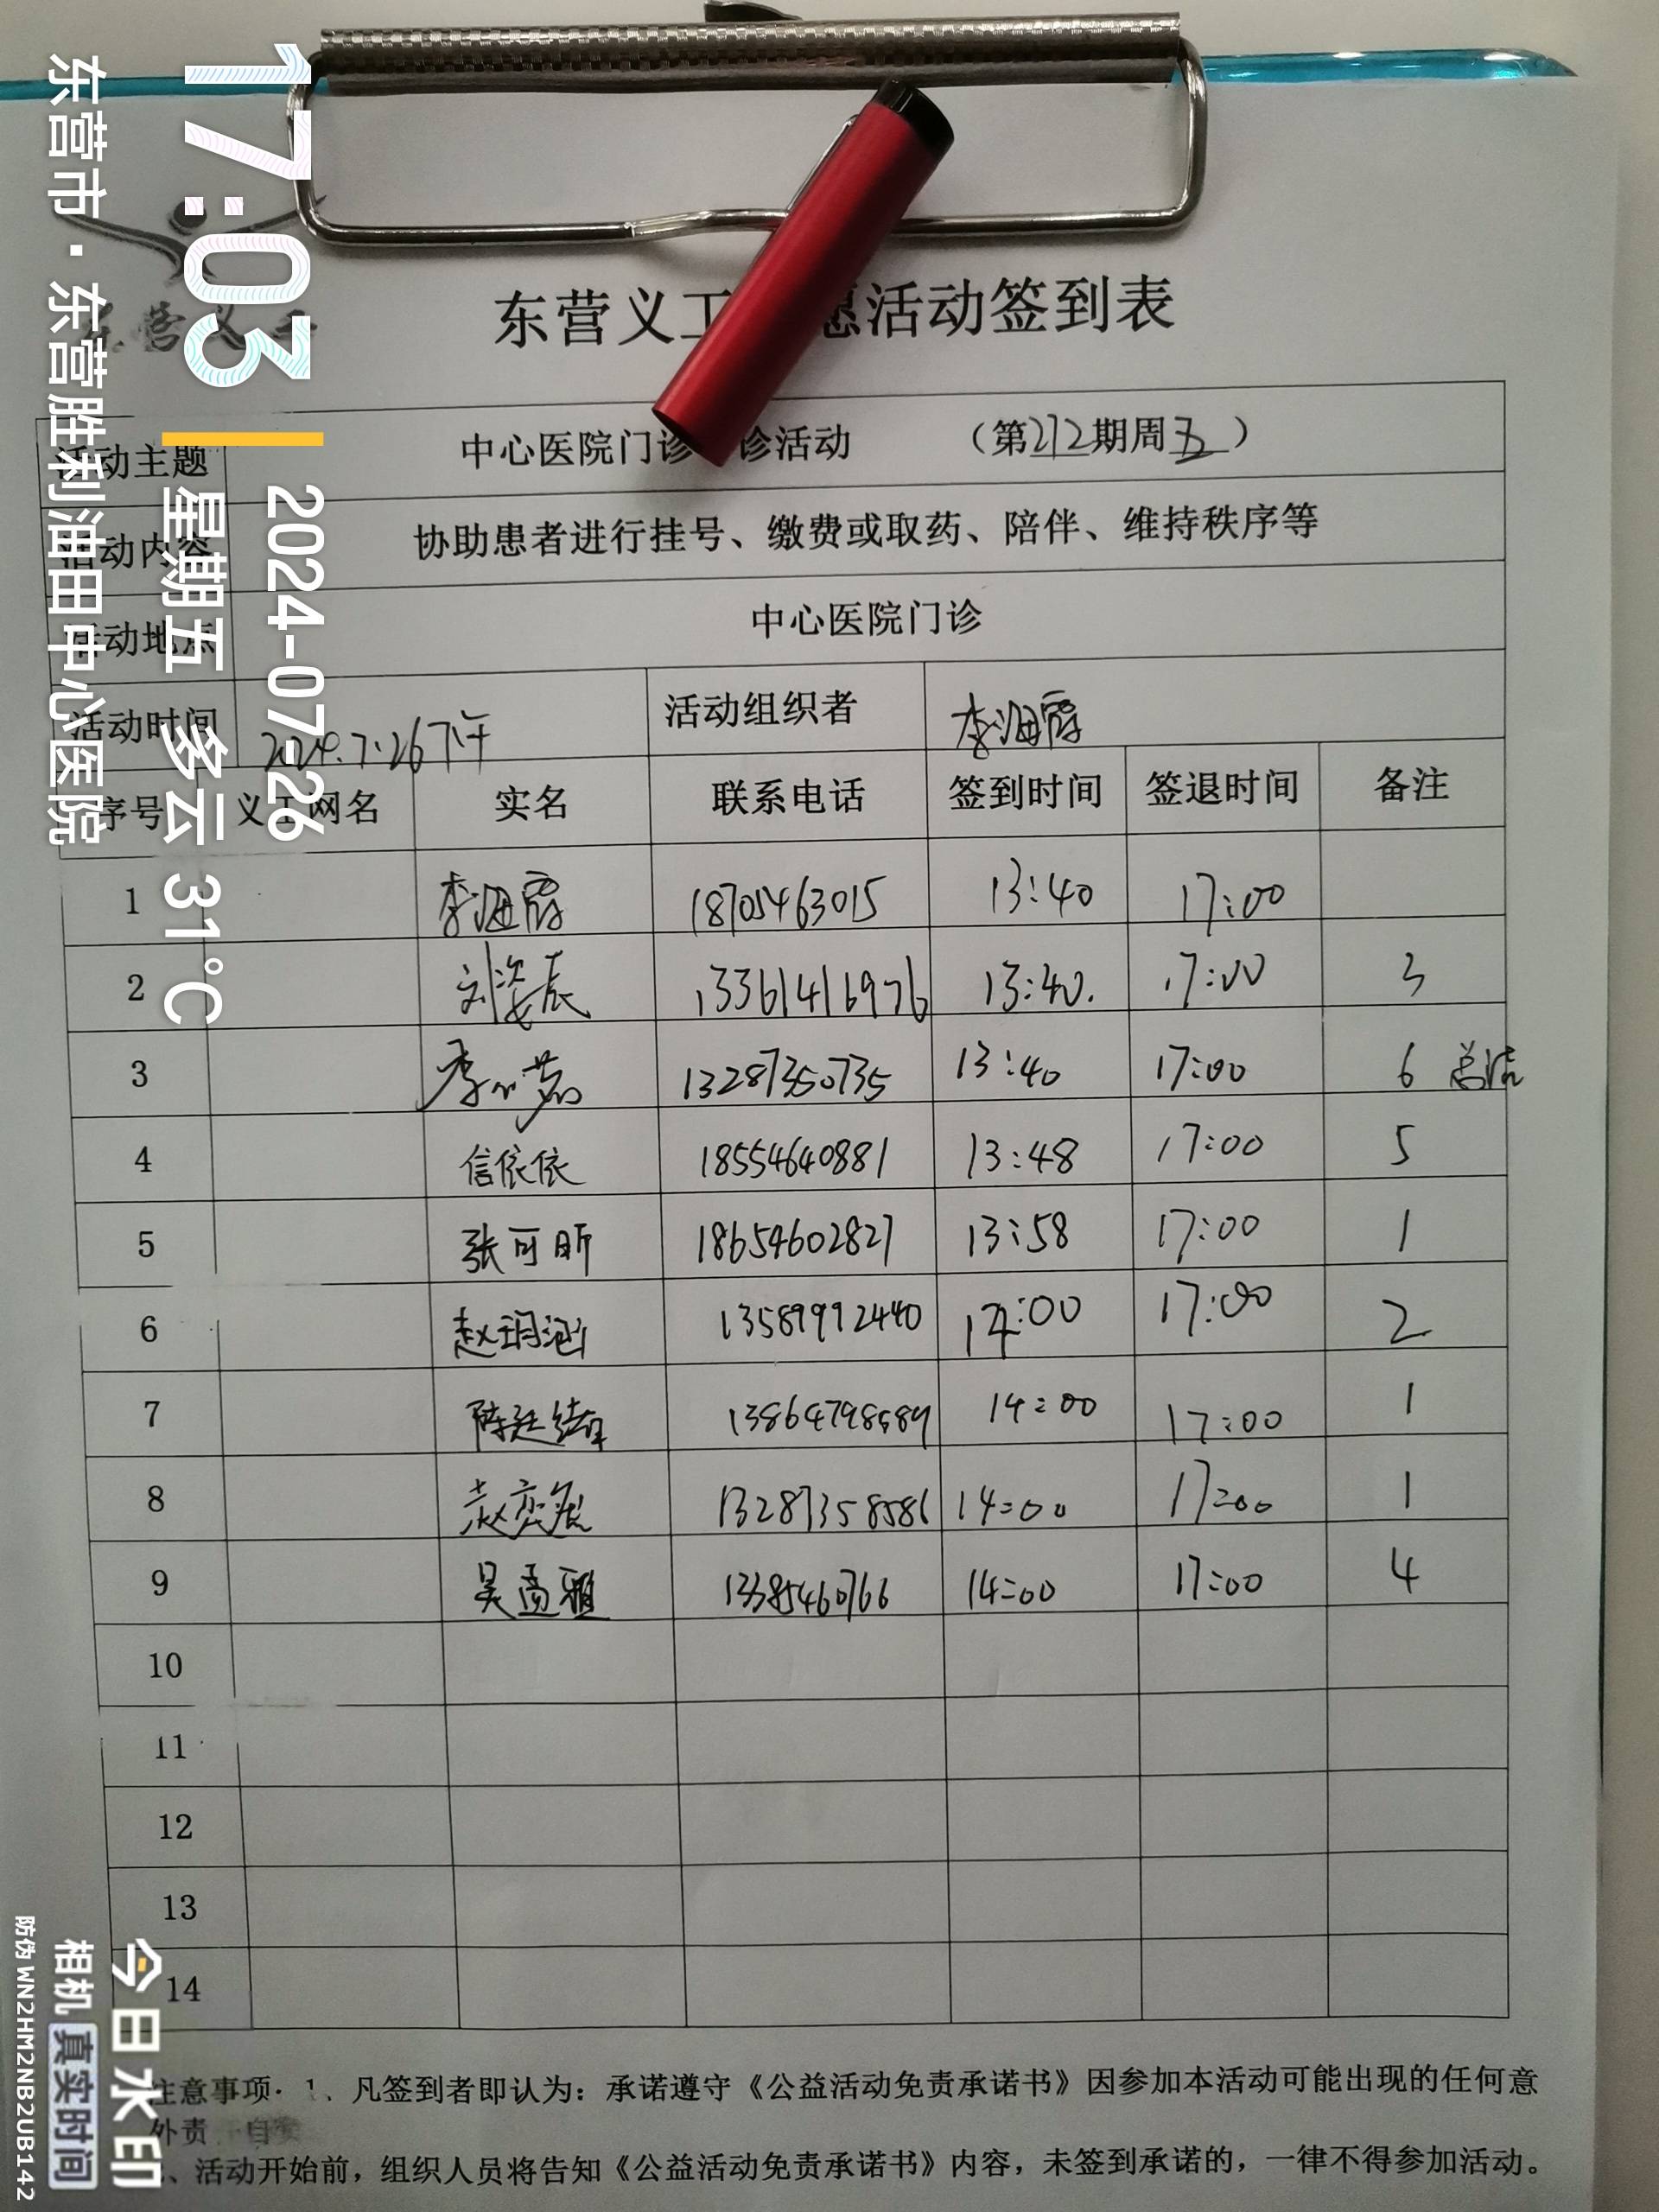 东营义工 愿活动签到表
活动主题 中心医院门诊 诊活动 （第212期周五）
活动内容 协助患者进行挂号、缴费或取药、陪伴、维持秩序等
活动地点 中心医院门诊
活动时间 2024.7.26下午 活动组织者 李海霞
序号 义工网名 实名 联系电话 签到时间 签退时间 备注
1 李海霞 18705463015 13:40 17:00
2 刘姿辰 13361416976 13:40. 17:00 3
3 13287350735 13:40 17:00 6 总结
4 信依依 18554640881 13:48 17:00 5
5 张可昕 18654602827 13:58 17:00 1
6 赵玥涵 13589992440 14:00 17:00 2
7 陈廷 13864798589 14:00 17:00 1
8 赵奕 13287358586 14:00 17:00 1
9 吴 雅 13385460766 14:00 17:00 4
10
11
12
13
14
注意事项：1、凡签到者即认为：承诺遵守《公益活动免责承诺书》因参加本活动可能出现的任何意
外责 自
、活动开始前，组织人员将告知《公益活动免责承诺书》内容，未签到承诺的，一律不得参加活动。
17:03
2024-07-26
星期五 多云 31°C
东营市·东营胜利油田中心医院
东营义工
今日水印
相机 真实时间
防伪 WN2HM2NB2UB142